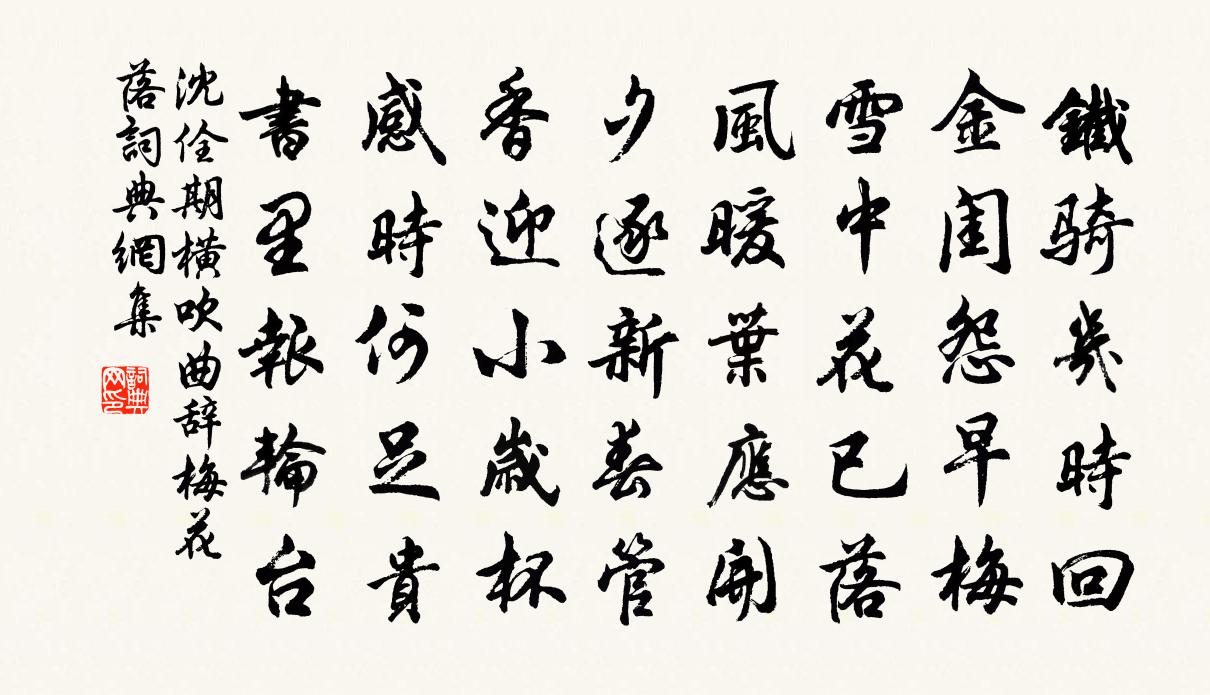 鐵騎幾時回
金闺怨早梅
雪中花已落
風暖葉應開
夕逐新春管
香迎小歲杯
感時何足貴
書里報輪台
沈佺期橫吹曲辞梅花
落詞典網集
詞典网印